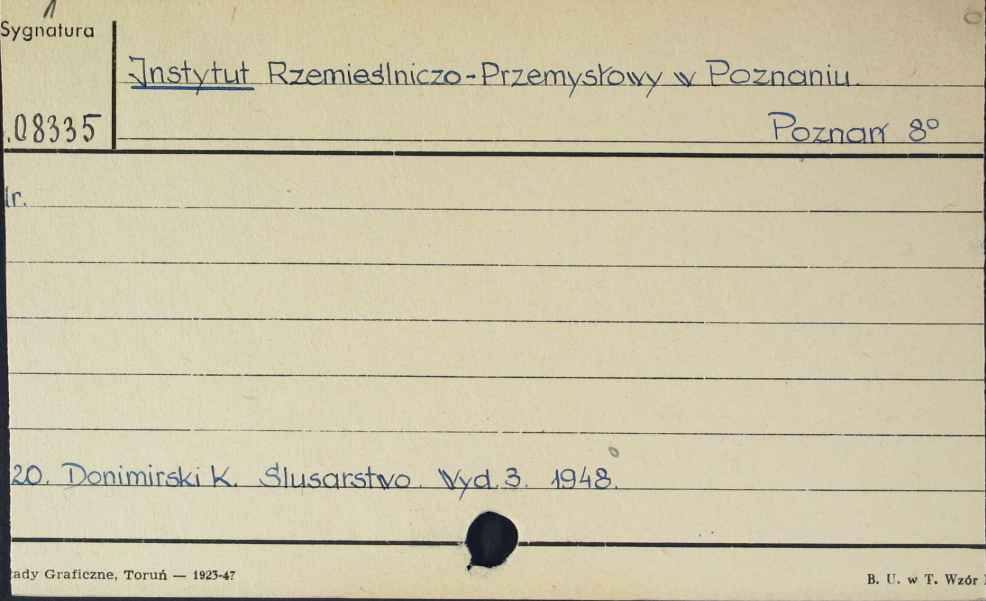 Sygnatura
Instytut Rzemieślniczo-Przemysłowy w Poznaniu.
08335
Poznań 8°
r.
20. Donimirski K. Ślusarstwo. Wyd. 3. 1948.
ady Graficzne, Toruń — 1923-47
B. U. w T. Wzór